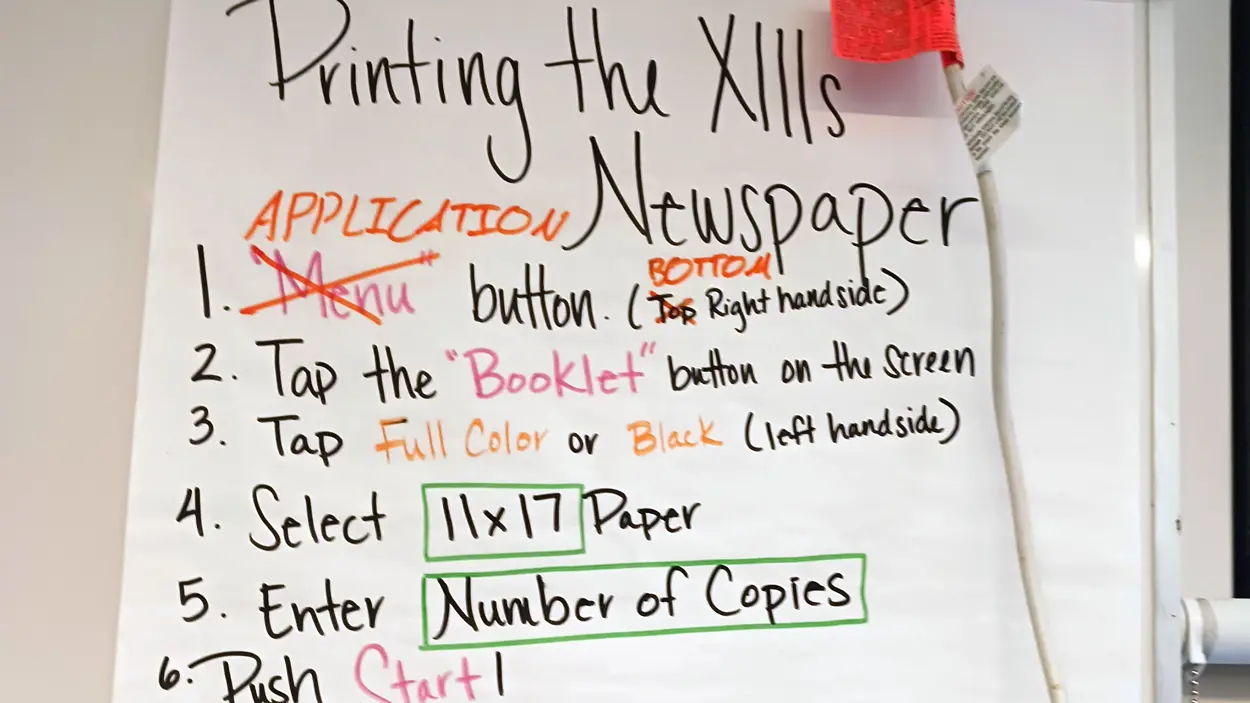 Printing the XIIIs
Newspaper
APPLICATION
BOTTOM
1. "Menu" button. (Top Right hand side)
2. Tap the "Booklet" button on the screen
3. Tap Full Color or Black (left hand side)
4. Select 11x17 Paper
5. Enter Number of Copies
6. Push Start!